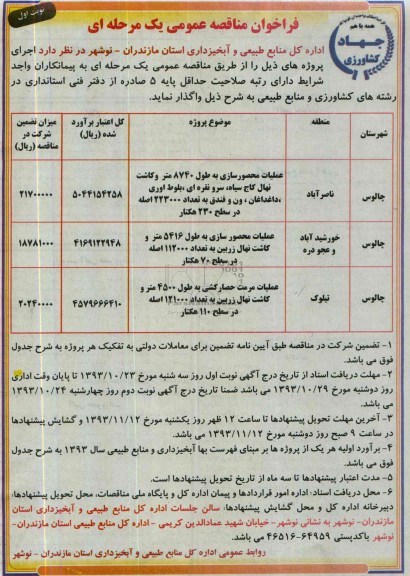 نوبت اول
همه با هم
جهاد
کشاورزی
فراخوان مناقصه عمومی یک مرحله ای
اداره کل منابع طبیعی و آبخیزداری استان مازندران - نوشهر در نظر دارد اجرای
پروژه های ذیل را از طریق مناقصه عمومی یک مرحله ای به پیمانکاران واجد
شرایط دارای رتبه صلاحیت حداقل پایه ۵ صادره از دفتر فنی استانداری در
رشته های کشاورزی و منابع طبیعی به شرح ذیل واگذار نماید.
شهرستان | منطقه | موضوع پروژه | کل اعتبار برآورد شده (ریال) | میزان تضمین شرکت در مناقصه (ریال)
چالوس | ناصرآباد | عملیات محصورسازی به طول ۸۷۴۰ متر وکاشت نهال کاج سیاه، سرو نقره ای ،بلوط اوری ،داغداغان ، ون و فندق به تعداد ۲۲۳۰۰۰ اصله در سطح ۲۳۰ هکتار | ۵۰۴۴۱۵۴۲۵۸ | ۲۱۷۰۰۰۰۰
چالوس | خورشید آباد و عجود دره | عملیات محصور سازی به طول ۵۴۱۶ متر و کاشت نهال زربین به تعداد ۱۱۲۰۰۰ اصله در سطح ۷۰ هکتار | ۴۱۶۹۱۲۲۹۴۸ | ۱۸۷۸۱۰۰۰
چالوس | تیلوک | عملیات مرمت حصارکشی به طول ۴۵۰۰ متر و کاشت نهال زربین به تعداد ۱۲۱۰۰۰ اصله در سطح ۱۱۰ هکتار | ۴۵۷۹۶۶۶۴۱۰ | ۲۰۲۴۰۰۰۰
۱- تضمین شرکت در مناقصه طبق آیین نامه تضمین برای معاملات دولتی به تفکیک هر پروژه به شرح جدول
فوق می باشد.
۲- مهلت دریافت اسناد از تاریخ درج آگهی نوبت اول روز سه شنبه مورخ ۱۳۹۳/۱۰/۲۳ تا پایان وقت اداری
روز دوشنبه مورخ ۱۳۹۳/۱۰/۲۹ می باشد ضمنا تاریخ درج آگهی نوبت دوم روز چهارشنبه ۱۳۹۳/۱۰/۲۴
می باشد.
۳- آخرین مهلت تحویل پیشنهادها تا ساعت ۱۲ ظهر روز یکشنبه مورخ ۱۳۹۳/۱۱/۱۲ و گشایش پیشنهادها
در ساعت ۹ صبح روز دوشنبه مورخ ۱۳۹۳/۱۱/۱۳ می باشد.
۴- برآورد اولیه هر یک از پروژه ها بر مبنای فهرست بها آبخیزداری و منابع طبیعی سال ۱۳۹۳ به شرح جدول
فوق می باشد.
۵- مدت اعتبار پیشنهادها تا سه ماه از تاریخ تحویل پیشنهادها است.
۶- محل دریافت اسناد: اداره امور قراردادها و پیمان اداره کل و پایگاه ملی مناقصات، محل تحویل پیشنهادها:
دبیرخانه اداره کل و محل گشایش پیشنهادها، سالن جلسات اداره کل منابع طبیعی و آبخیزداری استان
مازندران- نوشهر به نشانی نوشهر- خیابان شهید عمادالدین کریمی - اداره کل منابع طبیعی استان مازندران-
نوشهر باکدپستی ۶۴۹۵۹-۴۶۵۱۶ می باشد.
روابط عمومی اداره کل منابع طبیعی و آبخیزداری استان مازندران - نوشهر